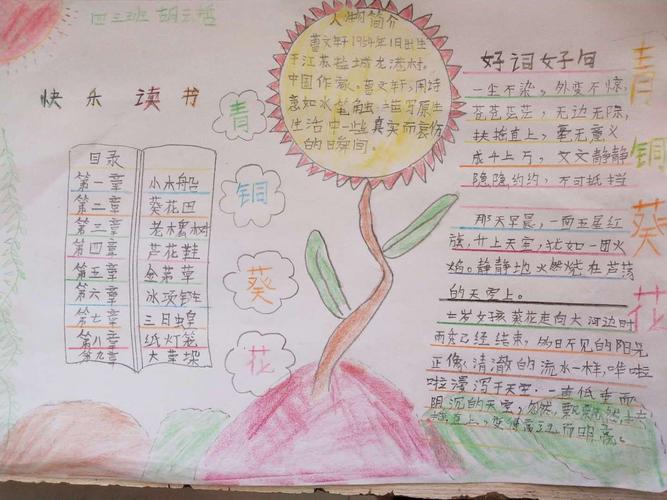 四三班 胡云哲
快乐读书
目录
第一章 小木船
第二章 葵花田
第三章 老槐树
第四章 芦花鞋
第五章 金茅草
第六章 冰项链
第七章 三日蝗
第八章 纸灯笼
第九章 大草垛
青
铜
葵
花
人物简介
曹文轩1954年1日出生
于江苏盐城龙港村。
中国作家。曹文轩用诗
意如水笔触,描写原生
生活中一些真实而哀伤
的日瞬间。
好词好句
一尘不染,外变不惊,
苍苍茫茫,无边无际,
扶摇直上,毫无意义
成千上万,文文静静
隐隐约约,不可抵挡
那天早晨,一面五星红
旗,升上天空,犹如一团火
焰。静静地火燃烧在芦荡
的天空上。
七岁女孩葵花走向大河边时
雨季已经结束,多日不见的阳光
正像清澈的流水一样,哗啦
啦漫泻于天空.一直低垂而
阴沉的天空,忽然飘飘然
直上,变得高远而明亮。
青铜葵花